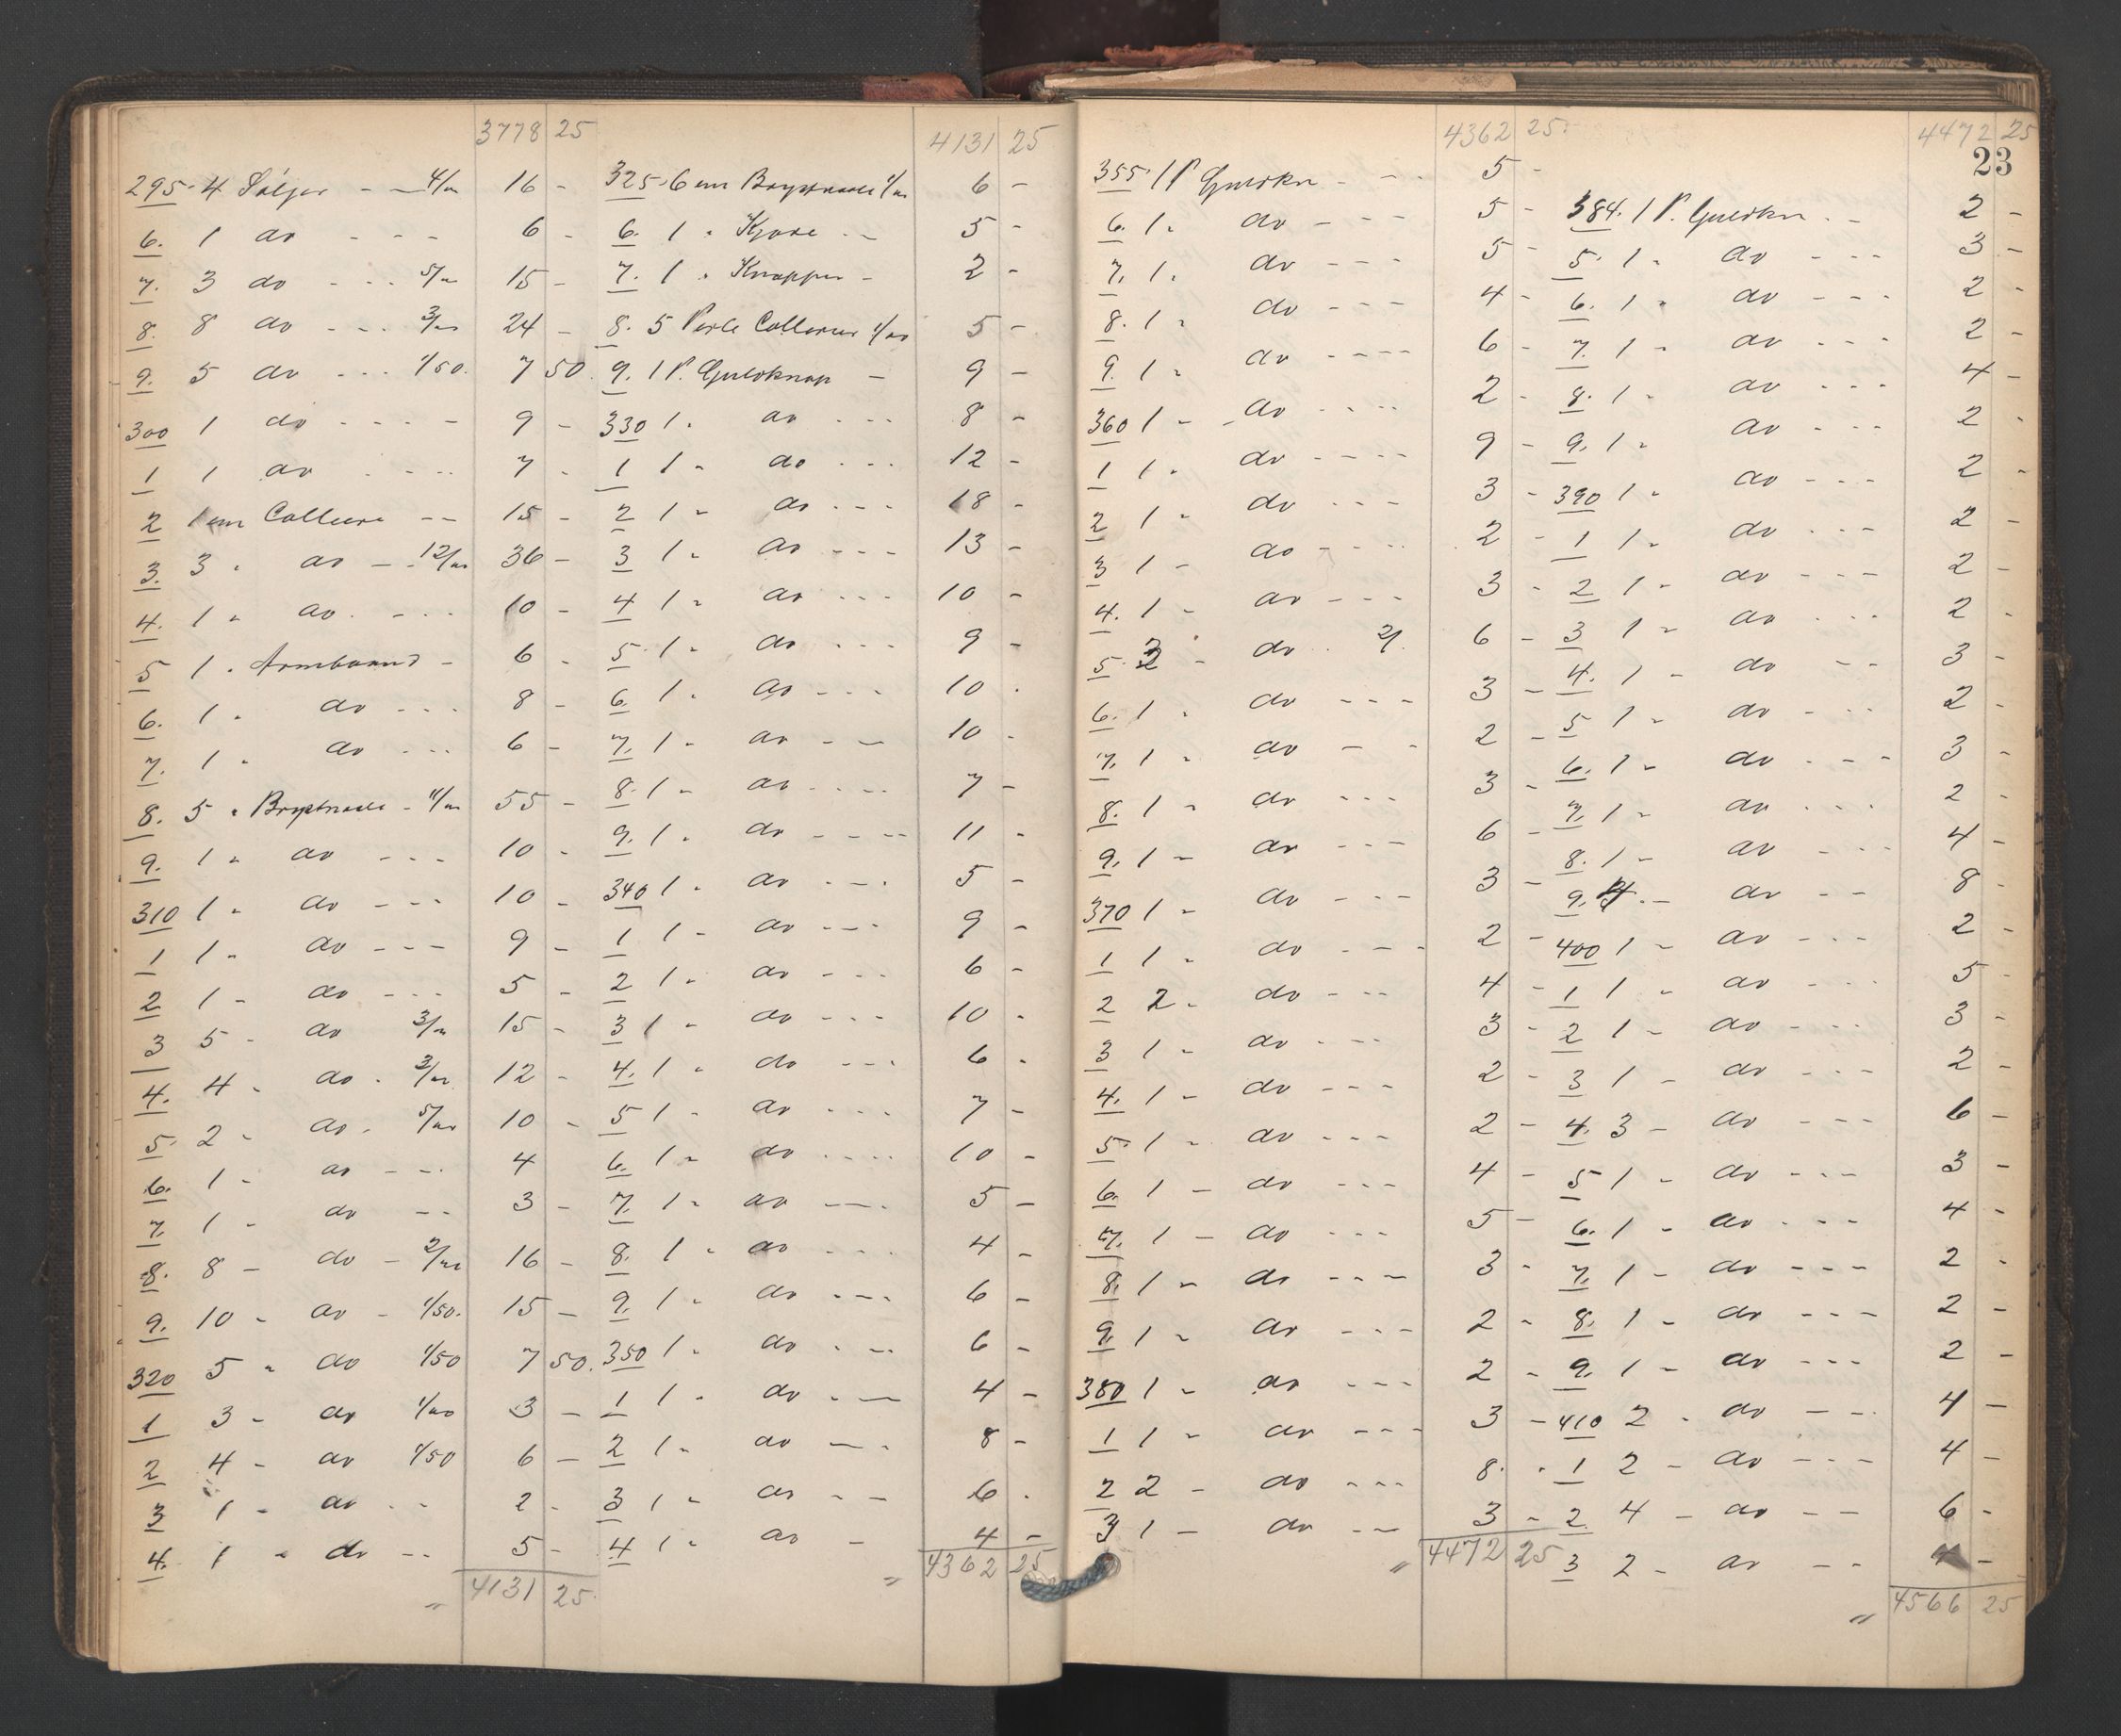 3778 25
295. 4 Søljer - - 4/00 16 -
6. 1 do - - - 6 -
7. 3 do - - - 5/00 15 -
8. 8 do - - - 3/00 24 -
9. 5 do - - - 1/50. 7 50
300 1 do - - - - 9 -
1 1 do - - - 7 -
2 1 em Colliere - - 15 -
3. 3 " do - - 12/00 36 -
4. 1 " do - - - 10 -
5 1 " Armbaand - 6 -
6. 1 " do - - - 8 -
7. 1 " do - - - 6 -
8. 5 " Brystnaale - 11/00 55 -
9. 1 " do - - - 10 -
310 1 " do - - - 10 -
1 1 " do - - - 9 -
2 1 " do - - - 5 -
3 5 - do 3/00 15 -
4. 4 - do - 3/00 12 -
5. 2 - do - 5/00 10 -
6. 1 - do - - - 4
7. 1 - do - - 3 -
8. 8 - do - 2/00 16 -
9. 10 - do - 1/50. 15 -
320 5 " do 1/50 7 50.
1 3 - do 1/00 3 -
2 4 - do 1/50 6 -
3 1 - do - - 2 -
4. 1 - do - - 5 -
" 4131 25
4131 25
325. 6 em Brystnaale 1/00 6 -
6. 1 " - - 5 -
7. 1 " Knapper - 2 -
8. 5 Perle Collierer 1/00 5 -
9. 1 P. Guldknap - 9 -
330 1 " do - - - 8 -
1 1 - do - - - 12 -
2 1 - do - - - 18 -
3 1 - do - - - 13 -
4 1 - do - - - 10 -
5 1 - do - - - 9 -
6. 1 - do - - - 10 -
7. 1 - do - - 10 -
8. 1 - do - - - 7 -
9. 1 - do - - - - 11 -
340 1 - do - - - 5 -
1 1 - do - - - 9 -
2 1 - do - - - 6 -
3 1 - do - - - 10 -
4. 1 - do - - - 6 -
5 1 - do - - - 7 -
6. 1 - do - - - - 10 -
7. 1 - do - - - 5 -
8. 1 - do - - - 4 -
9. 1 - do - - - 6 -
350 1 - do - - - 6 -
1 1 - do - - 4 -
2 1 - do - - 8 -
3 1 - do - - 6 -
4 1 - do - 4 -
" 4362 25
4362 25
355 1 P Guldkn - - - 5 -
6. 1 " do - - - 5 -
7. 1 " do - - - 5 -
8. 1 " do - - - 4 -
9. 1 " do - - - - 6 -
360 1 - - do - - - - 2 -
1 1 " do - - - - 9 -
2 1 " do - - - 3 -
3 1 - do - - - - 2 -
4. 1 - do - - - 3 -
5. 3 - do 2/ 6 -
6. 1 . do - - - 3 -
7. 1 " do - - 2 -
8. 1 " do - - - 3 -
9. 1 - do - - - 6 -
370 1 - do - - - 3 -
1 1 " do - - - - 2 -
2 2 - do - - - 4 -
3 1 - do - - - 3 -
4. 1 - do - - - 2 -
5. 1 - do - - - 2 -
6. 1 - do - - - 4 -
7. 1 - do - - - 5 -
8. 1 - do - - - 3 -
9. 1 - do - - - 2 -
380 1 - do - - - 2 -
1 1 - do - - - 3 -
2 2 - do - - - 8 -
3 1 - do - - 3 -
" 4472 25
4472 25
23
384. 1 P. Guldkn - - 2 -
5. 1 - do - - - 3 -
6. 1 - do - - - 2 -
7. 1 - do - - - 2 -
8. 1 - do - - - 4 -
9. 1 - do - - - 2 -
390 1 - do - - - 2 -
1 1 - do - - - 2 -
2 1 - do - - - 2 -
3 1 - do - - - 2 -
4. 1 - do - - 3 -
5 1 - do - - - 2 -
6. 1 - do - - - 3 -
7. 1 - do - - - 2 -
8. 1 - do - - - 4 -
9. 4 - do - - 8 -
400 1 - do - - - 2 -
1 1 - do - - - 5 -
2 1 - do - - - 3 -
3 1 - do - - - 2 -
4. 3 - do - - - 6 -
5 1 - do - - - 3 -
6. 1 - do - - - 4 -
7. 1 - do - - - 2 -
8. 1 - do - - - 2 -
9. 1 - do - - - 2 -
410 2 - do - - 4 -
1 2 - do - - - 4 -
2. 4 - do - - 6 -
3 2 - do - - 4 -
" 4566 25